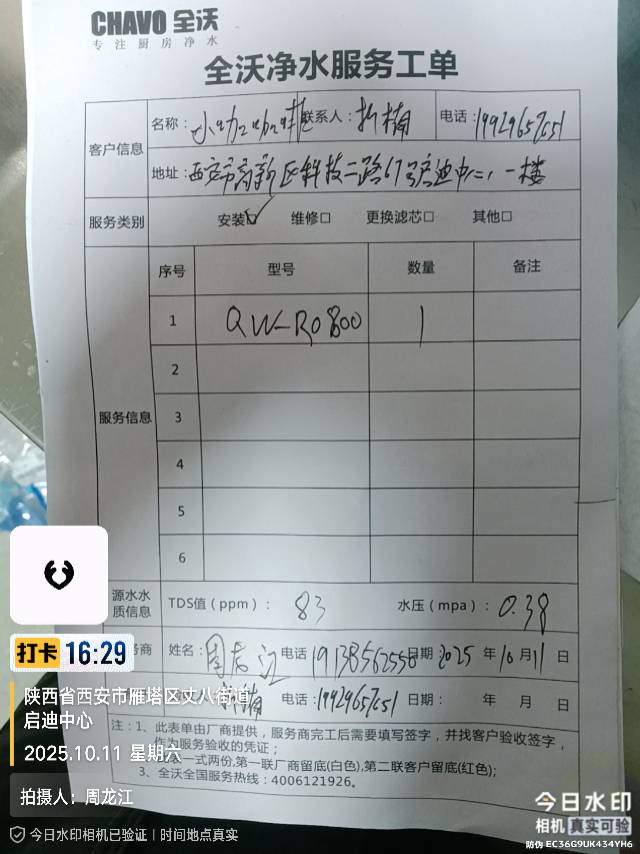 CHAVO 全沃
专注厨房净水
全沃净水服务工单
客户信息
名称： 联系人： 电话：19929657651
地址：西安市高新区科技二路67号启迪中心一楼
服务类别 安装☑ 维修□ 更换滤芯□ 其他□
服务信息
序号 型号 数量 备注
1 QW-RO800 1
2
3
4
5
6
源水水质信息 TDS值（ppm）： 83 水压（mpa）： 0.38
务商 姓名：周龙江 电话 19138562558 日期 2025 年 10 月 11 日
电话：19929657651 日期： 年 月 日
注：1、此表单由厂商提供，服务商完工后需要填写签字，并找客户验收签字，
作为服务验收的凭证；
一式两份,第一联厂商留底(白色),第二联客户留底(红色);
3、全沃全国服务热线：4006121926。
打卡 16:29
陕西省西安市雁塔区丈八街道
启迪中心
2025.10.11 星期六
拍摄人：周龙江
今日水印相机已验证 | 时间地点真实
今日水印
相机 真实可验
防伪 EC36G9UK434YH6